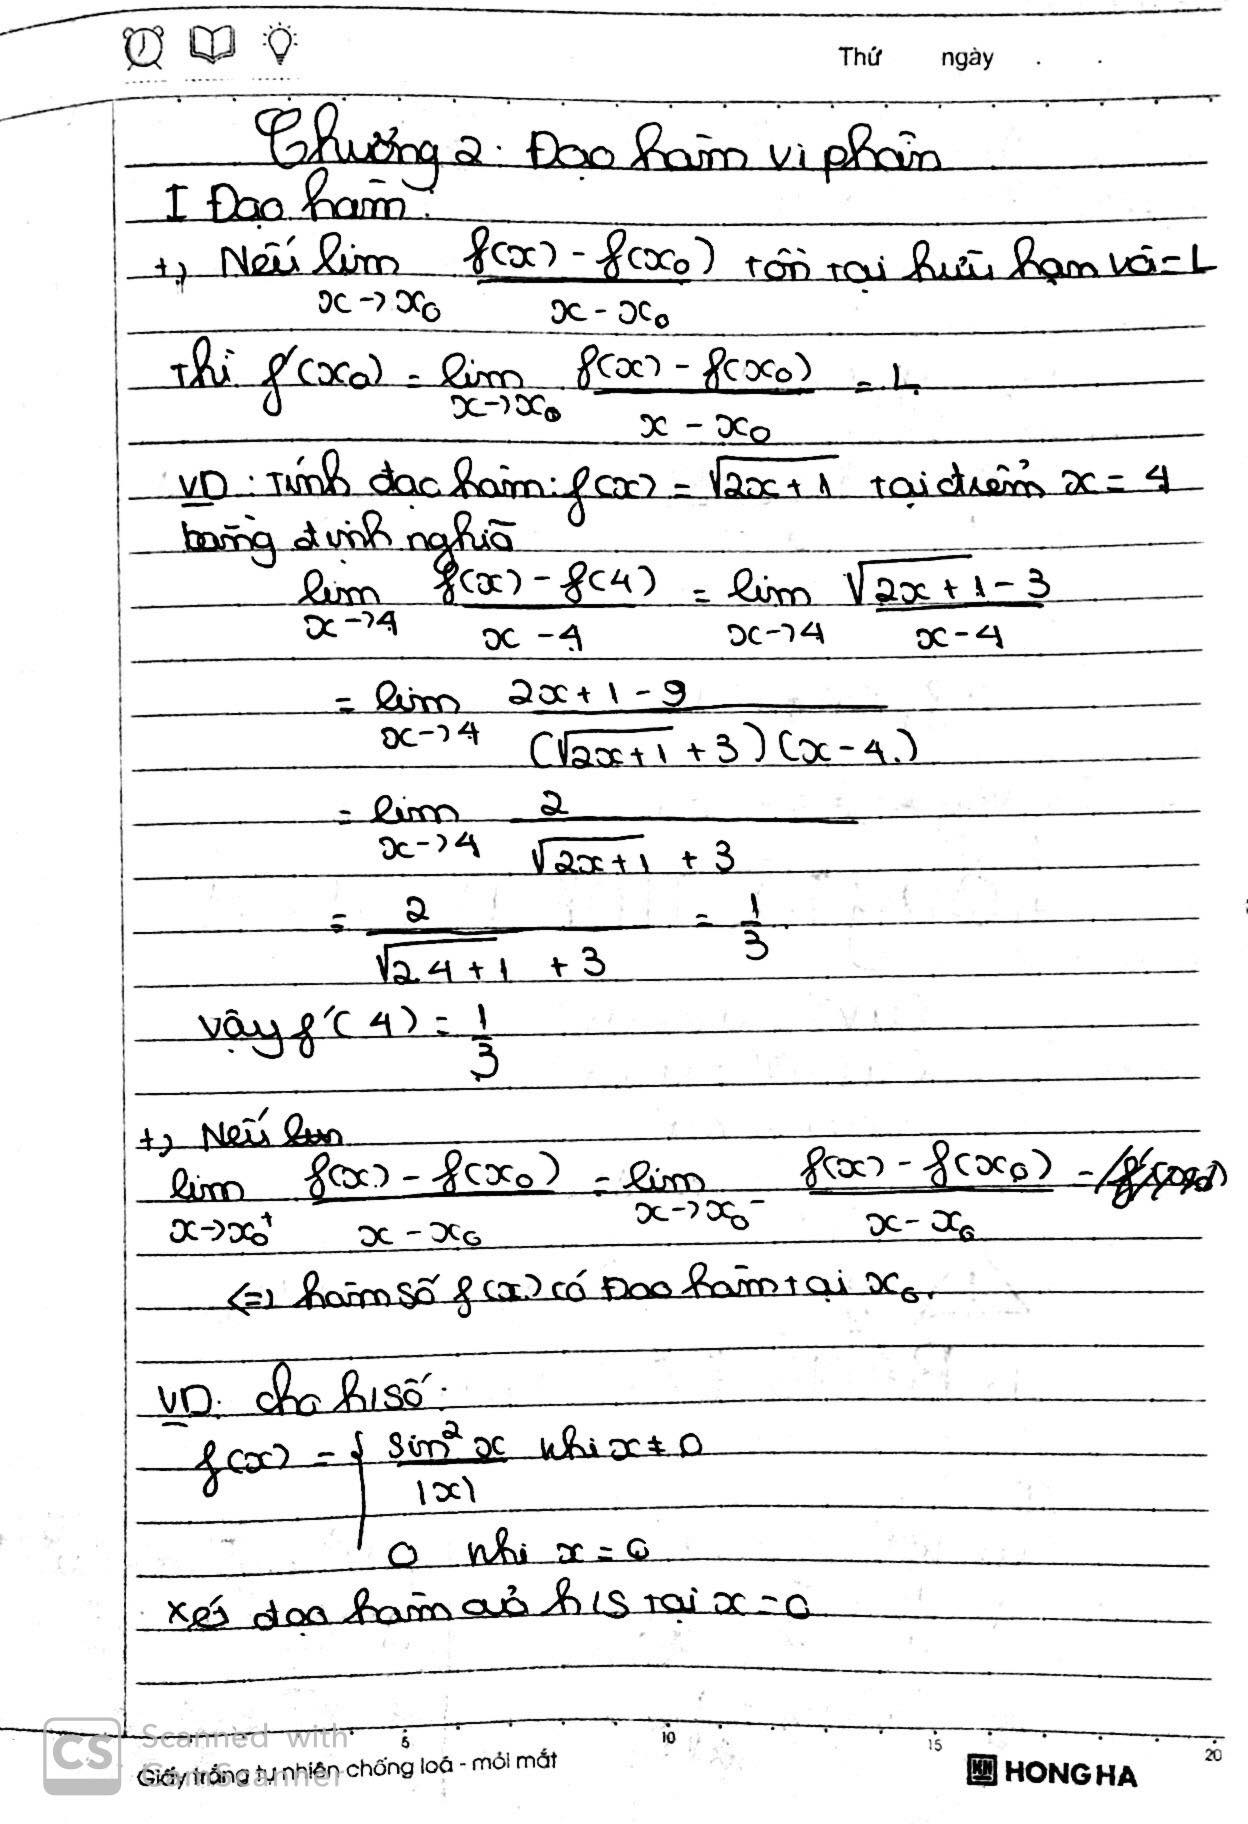 Thứ ngày . .
Chương 2: Đạo hàm vi phân
I Đạo hàm:
+, Nếu lim x→x₀ (f(x) - f(x₀))/(x - x₀) tồn tại hữu hạn và = L
thì f'(x₀) = lim x→x₀ (f(x) - f(x₀))/(x - x₀) = L
VD: Tính đạo hàm: f(x) = √(2x+1) tại điểm x = 4
bằng định nghĩa
lim x→4 (f(x) - f(4))/(x - 4) = lim x→4 (√(2x+1) - 3)/(x - 4)
= lim x→4 (2x+1-9)/((√(2x+1) + 3)(x - 4))
= lim x→4 2/(√(2x+1) + 3)
= 2/(√(2.4+1) + 3) = 1/3.
Vậy f'(4) = 1/3
+, Nếu
lim x→x₀⁺ (f(x) - f(x₀))/(x - x₀) = lim x→x₀⁻ (f(x) - f(x₀))/(x - x₀) =
<=> hàm số f(x) có Đạo hàm tại x₀.
VD: cho h/số:
f(x) = { sin²x/|x| khi x ≠ 0
0 khi x = 0
Xét đạo hàm của h/s tại x = 0
5 10 15 20
CS Scanned with CamScanner
Giấy trắng tự nhiên chống loá - mỏi mắt
HONG HA